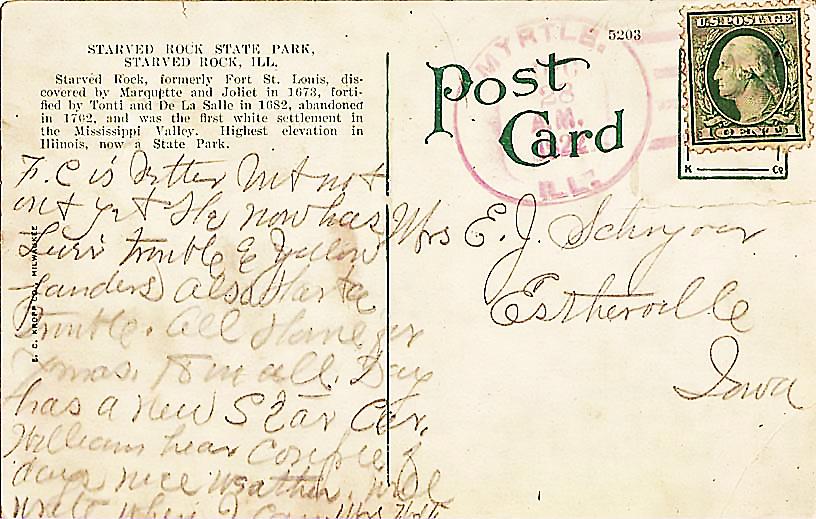 STARVED ROCK STATE PARK,
STARVED ROCK, ILL.
Starved Rock, formerly Fort St. Louis, dis-
covered by Marquette and Joliet in 1673, forti-
fied by Tonti and De La Salle in 1682, abandoned
in 1702, and was the first white settlement in
the Mississippi Valley. Highest elevation in
Illinois, now a State Park.
F. C is better but not
out yet He now has
Liver trouble & yellow
Janders also Hart
trouble. All Home for
Xmas. Ray
has a new Star Car.
William hear couple of
days nice weather. will
write when I can Mrs
E. C. KROPP CO., MILWAUKEE
5203
Post
Card
MYRTLE,
28
A.M.
1922
ILL.
U.S. POSTAGE
K Co
Mrs E. J. Schryver
Estherville
Iowa